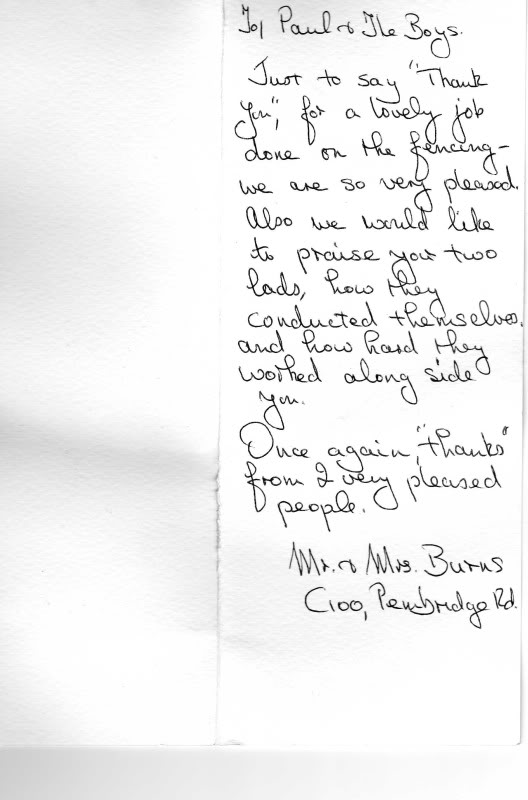 To/ Paul & The Boys.
Just to say "Thank
You", for a lovely job
done on the fencing-
we are so very pleased.
Also we would like
to praise your two
lads, how they
conducted themselves.
and how hard they
worked along side
you.
Once again, "thanks"
from 2 very pleased
people.
Mr. & Mrs. Burns
C100, Pembridge Rd.